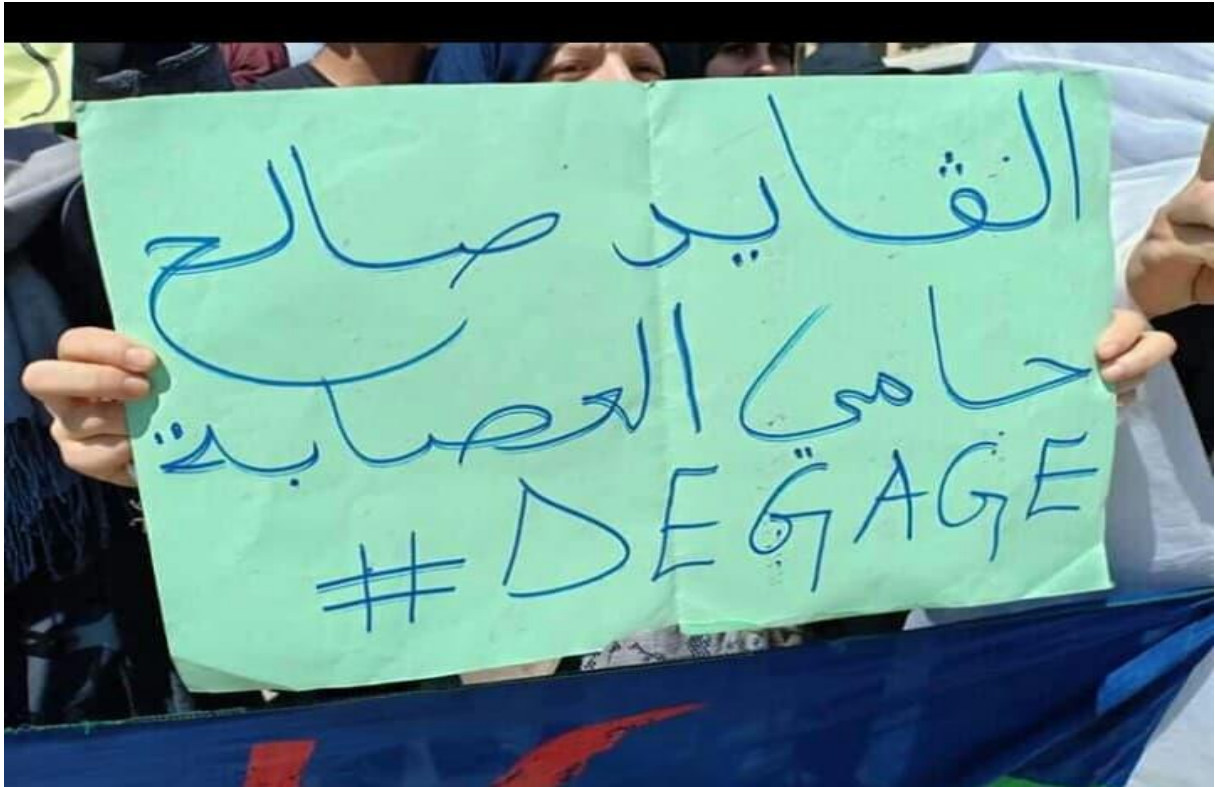 الڨايد صالح
حامي العصابة
#DEGAGE